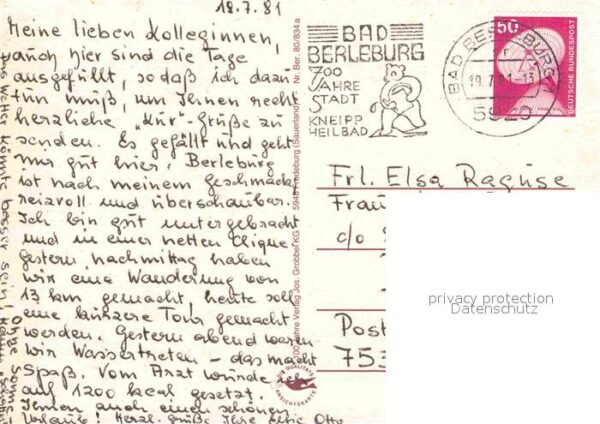 18.7.81
Meine lieben Kolleginnen,
auch hier sind die Tage
ausgefüllt, so daß ich dazu
tun muß, um Ihnen recht
herzliche "Kur"-Grüße zu
senden. Es gefällt und geht
mir gut hier! Berleburg
ist nach meinem Geschmack
reizvoll und überschaubar.
Ich bin gut untergebracht
und in einer netten Clique.
Gestern nachmittag haben
wir eine Wanderung von
13 km gemacht, heute soll
eine kürzere Tour gemacht
werden. Gestern abend waren
wir Wassertreten - das macht
Spaß. Vom Arzt wurde ich
auf 1200 kcal gesetzt.
Ihnen auch einen schönen
Urlaub! Herzl. Grüße Ihre Otto
Das Wetter könnte besser sein!
100 Jahre Verlag Jos. Grobbel KG 5948 Fredeburg (Sauerland) Nr. Ber. 80/834a
QUALITÄTS
ANSICHTSKARTE
BAD
BERLEBURG
700
JAHRE
STADT
KNEIPP
HEILBAD
BAD BERLEBURG
19.7.81-13
5920
50
DEUTSCHE BUNDESPOST
Frl. Elsa Raguse
Frau
c/o
Post
753
privacy protection
Datenschutz